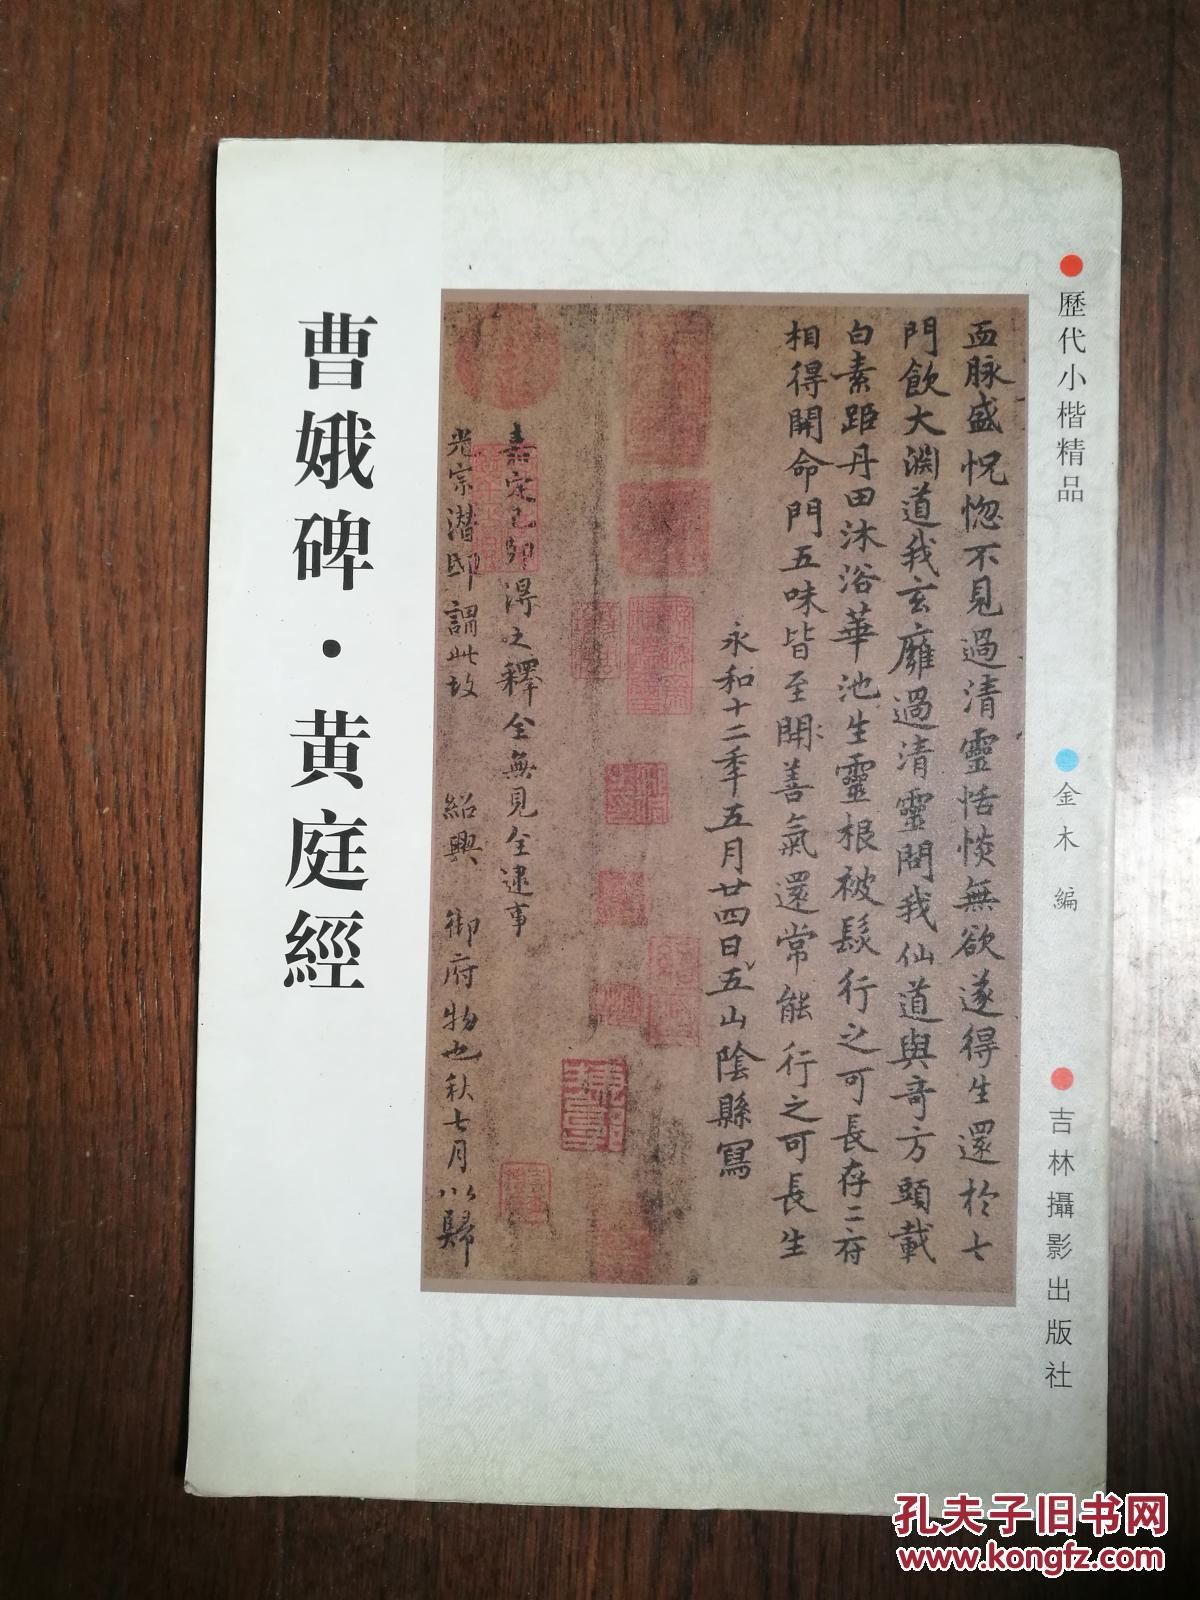 歷代小楷精品
金木 編
吉林攝影出版社
曹娥碑·黄庭經
面脉盛怳惚不見過清靈恬惔無欲遂得生還於七
門飲大淵道我玄廱過清靈問我仙道與奇方頭載
白素距丹田沐浴華池生靈根被髮行之可長存二府
相得開命門五味皆至開善氣還常能行之可長生
永和十二年五月廿四日五山陰縣寫
嘉定己卯得之釋全無見全逮事
光宗潛邸謂此故 紹興 御府物也秋七月以歸
孔夫子旧书网
www.kongfz.com